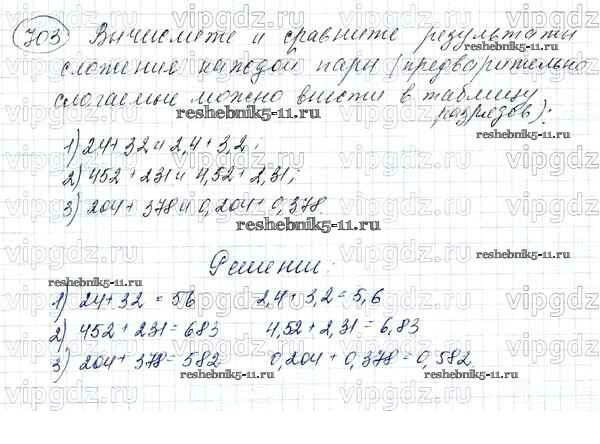 703 Вычислите и сравните результаты
сложения каждой пары (предварительно
слагаемые можно внести в таблицу
разрядов):
reshebnik5-11.ru
1) 24+32 и 2,4+3,2;
2) 452+231 и 4,52+2,31;
3) 204+378 и 0,204+0,378
reshebnik5-11.ru
Решение:
reshebnik5-11.ru
1) 24+32=56 2,4+3,2=5,6
2) 452+231=683 4,52+2,31=6,83
3) 204+378=582 0,204+0,378=0,582
reshebnik5-11.ru
reshebnik5-11.ru
vipgdz.ru